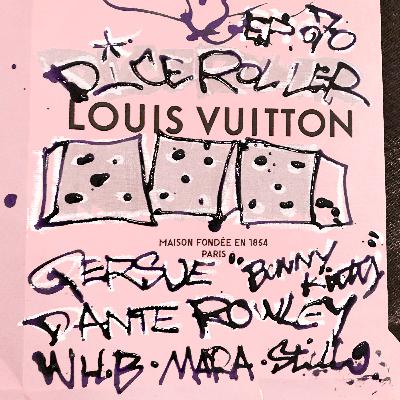 EP. 90
DICE ROLLER
LOUIS VUITTON
MAISON FONDÉE EN 1854
PARIS
GERSUE "BUNNY Kitty"
DANTE ROWLEY
W.H.B. MARA. Stills